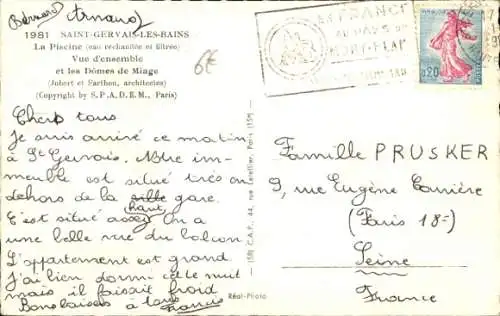 Bernard Arnaud
1981 SAINT-GERVAIS-LES-BAINS
La Piscine (eau réchauffée et filtrée)
Vue d'ensemble
et les Dômes de Miage
(Jobert et Parthon, architectes)
(Copyright by S.P.A.D.E.M., Paris)
6€
LA FRANCE
AU PAYS DU
MONT-BLANC
0,20
POSTES
Chers tous
Je suis arrivé ce matin
à St Gervais. Nôtre im-
meuble est situé très en
dehors de la ville gare.
C'est situé assez haut, On a
une belle vue du balcon
L'appartement est grand.
J'ai bien dormi cette nuit
mais il faisait froid
Bons baisers à tous
Francis
(58) C.A.P. - 44, rue Letellier, Paris (15e)
Réal-Photo
Famille PRUSKER
9, rue Eugène Carrière
(Paris 18e)
Seine
France